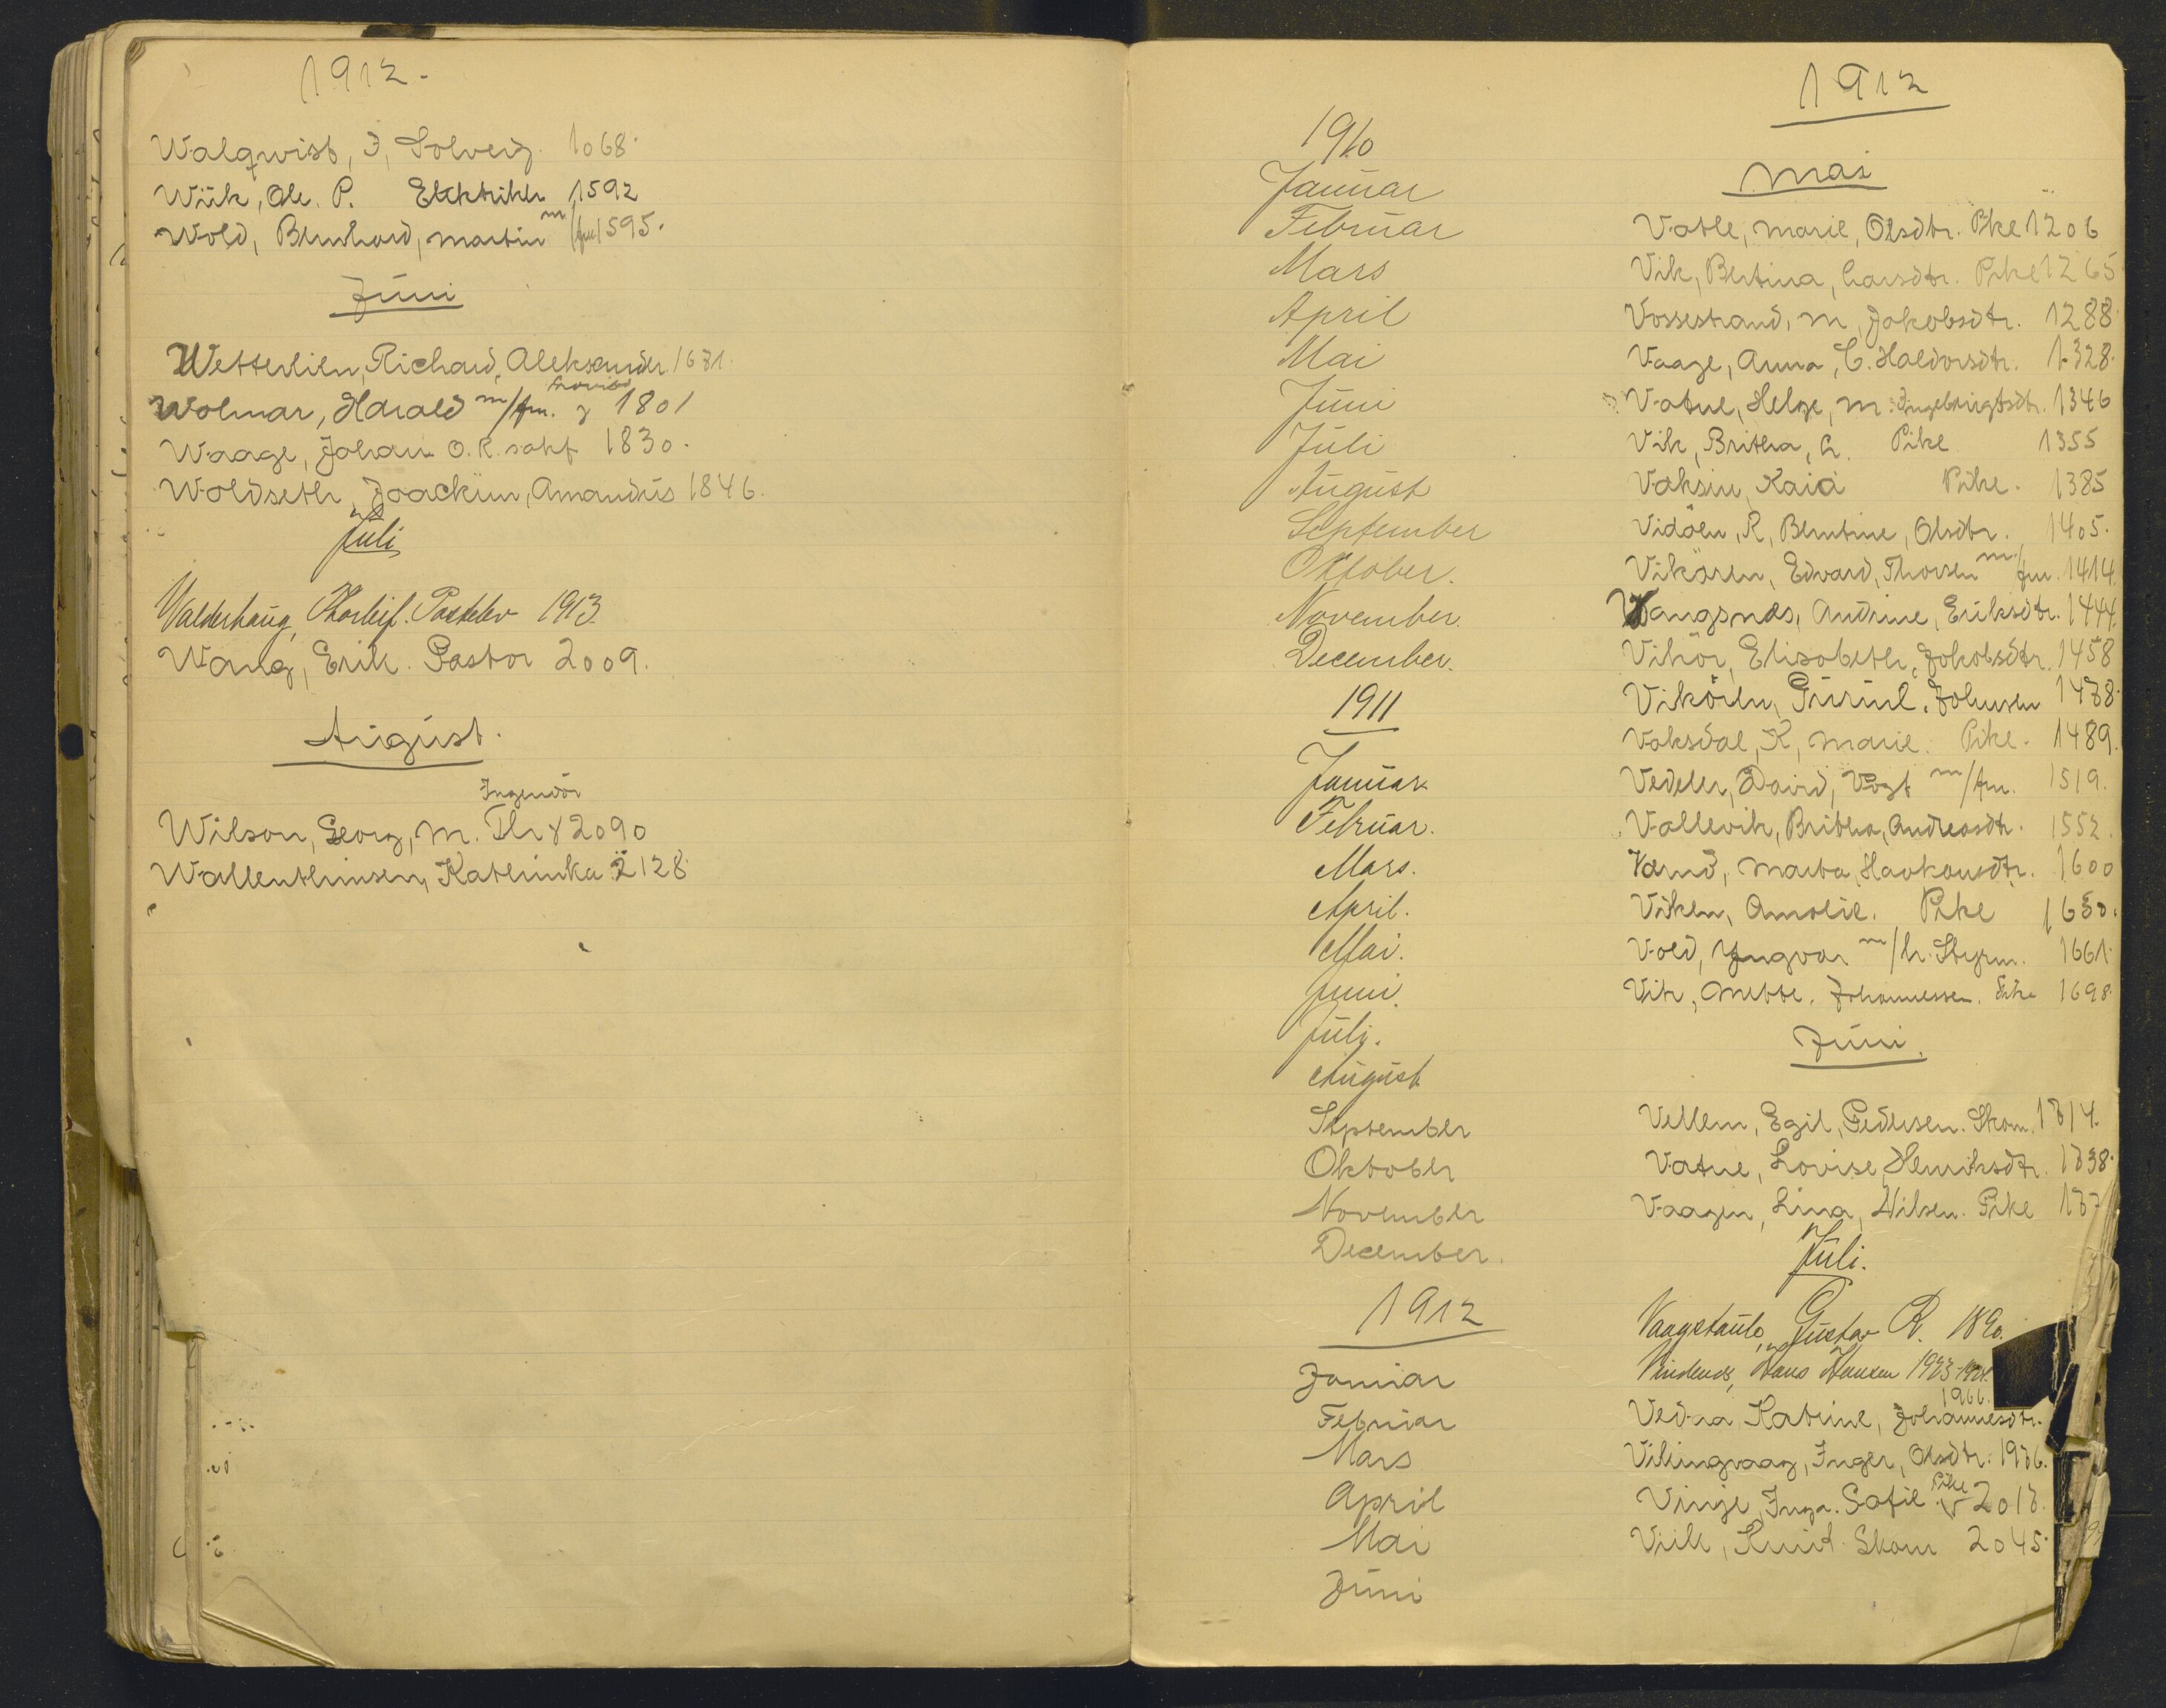 1912.
Walqvist, J, Solveig. 1068.
Wiik, Ole. P. Elektriker 1592
Wold, Bernhard, Martin m/fm 1595.
Juni
Wetterlien, Richard, Aleksander. 1671.
Wolmar, Harald m/fm. 1801
Waage, Johan O. R. sakf 1830.
Woldseth, Joackim, Amandus 1846.
Juli
Walderhaug, Thorleif. Postelev 1913.
Wang, Erik. Pastor 2009.
August.
Ingeniör
Wilson, Georg, M. 2090
Wallenthinsen, Kathinka 2128.
1910
Januar
Februar
Mars
April
Mai
Juni
Juli
August
September
Oktober.
November.
December.
1911
Januar
Februar.
Mars.
April.
Mai.
Juni.
Juli.
August
September
Oktober
November
December.
1912
Januar
Februar
Mars
April
Mai
Juni
1912
Mai
Vatle, Marie, Olsdtr. Pike 1206
Vik, Bertina, Larsdtr. Pike 1265
Vossestrand, M, Jakobsdtr. 1288.
Vaage, Anna, C. Haldorsdtr. 1328.
Vatne, Helge, M. Ingebrigtsdtr. 1346
Vik, Britha, A. Pike 1355
Vaksin, Kaia Pike. 1385
Vidöen, R, Berntine, Olsdtr. 1405.
Vikören, Edvard, Thorsen m/fm. 1414.
Wangsnes, Andrine, Eriksdtr. 1444.
Vikör, Elisabeth, Jakobsdtr. 1458
Vikören, Johnsen 1478.
Vaksdal, K, Marie. Pike. 1489.
Vedeler, David, Vogt m/fm. 1519.
Vallevik, Britha, Andreasdtr. 1552.
Marta, Haakonsdtr. 1600
Viken, Amalie. Pike 1650.
Vold, Yngvar m/h. Styrm. 1661.
Vik, Mette. Johannessen. Pike 1698.
Juni.
Vellem, Egil, Pedersen. Skom. 1714.
Vatne, Lovise, Henriksdtr. 1738.
Vaagen, Lina, Nilsen. Pike
Juli.
Gustav R. 1890.
Hans Hansen 1923-1924.
1966.
Vedaa, Katrine, Johannesdtr.
Vikingvaag, Inger, Olsdtr. 1976.
Vinje, Inga. Sofie Pike 2017.
Viik, Knut. Skom 2045.